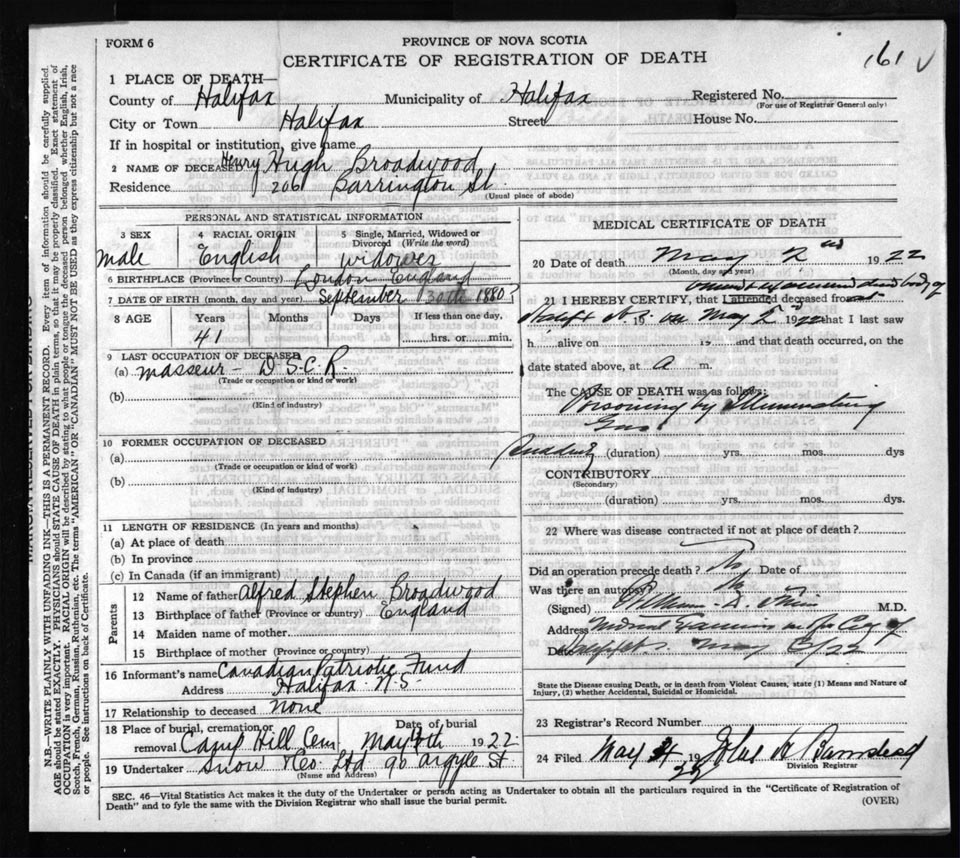 FORM 6
PROVINCE OF NOVA SCOTIA
CERTIFICATE OF REGISTRATION OF DEATH
161
1 PLACE OF DEATH—
County of Halifax Municipality of Halifax Registered No.
(For use of Registrar General only)
City or Town Halifax Street House No.
If in hospital or institution, give name
2 NAME OF DECEASED Henry Hugh Broadwood
Residence 206 Barrington St.
(Usual place of abode)
PERSONAL AND STATISTICAL INFORMATION
3 SEX
male
4 RACIAL ORIGIN
English
5 Single, Married, Widowed or Divorced (Write the word)
widower
6 BIRTHPLACE (Province or Country) London England
7 DATE OF BIRTH (month, day and year) September 30th 1880?
8 AGE Years Months Days If less than one day,
41 hrs. or min.
9 LAST OCCUPATION OF DECEASED
(a) masseur - D.S.C.R.
(Trade or occupation or kind or work)
(b)
(Kind of industry)
10 FORMER OCCUPATION OF DECEASED
(a)
(Trade or occupation or kind of work)
(b)
(Kind of industry)
11 LENGTH OF RESIDENCE (In years and months)
(a) At place of death
(b) In province
(c) In Canada (if an immigrant)
Parents
12 Name of father Alfred Stephen Broadwood
13 Birthplace of father (Province or country) England
14 Maiden name of mother
15 Birthplace of mother (Province or country)
16 Informant's name Canadian Patriotic Fund
Address Halifax N.S
17 Relationship to deceased none
18 Place of burial, cremation or removal Camp Hill Cem Date of burial May 4th 1922
19 Undertaker Snow & Co. Ltd 90 Argyle St
(Name and Address)
MEDICAL CERTIFICATE OF DEATH
20 Date of death May 2nd 1922
(Month, day and year)
21 I HEREBY CERTIFY, that I attended deceased from
dead body of
N.S. on May 2nd 1922 that I last saw
h alive on 19 and that death occurred, on the
date stated above, at A m.
The CAUSE OF DEATH was as follows:
Poisoning by Illuminating
Gas
(duration) yrs. mos. dys
CONTRIBUTORY
(Secondary)
(duration) yrs. mos. dys.
22 Where was disease contracted if not at place of death?
Did an operation precede death? No Date of
Was there an autopsy? No
(Signed) M.D.
Address Medical Examiner City of
Date May 22
State the Disease causing Death, or in death from Violent Causes, state (1) Means and Nature of
Injury, (2) whether Accidental, Suicidal or Homicidal.
23 Registrar's Record Number
24 Filed May 4 1922 Barnstead
Division Registrar
SEC. 46—Vital Statistics Act makes it the duty of the Undertaker or person acting as Undertaker to obtain all the particulars required in the "Certificate of Registration of
Death" and to fyle the same with the Division Registrar who shall issue the burial permit.
(OVER)
MARGIN RESERVED FOR BINDING
N.B.—WRITE PLAINLY WITH UNFADING INK—THIS IS A PERMANENT RECORD. Every item of information should be carefully supplied.
AGE should be stated EXACTLY. PHYSICIANS should STATE CAUSE OF DEATH in plain terms, so that it may be properly classified. Exact statement of
OCCUPATION is very important. RACIAL ORIGIN will be described by stating to what people or tongue the deceased person belonged whether English, Irish,
Scotch, French, German, Russian, Ruthenian, etc. The terms "AMERICAN" or "CANADIAN" MUST NOT BE USED as they express citizenship but not a race
or people. See instructions on back of Certificate.